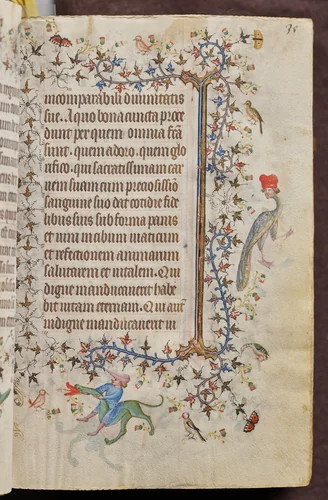 incomparabili divinitatis
sue. A quo bona cuncta proce
dunt per quem omnia scā
sunt. quem adoro. quem glo
rifico. qui sacratissimam car
nem suam cum preciosissimo
sanguine suo dat cotidie fide
libus suis sub forma panis
et vini in cibum viaticum
et refectionem animarum
salutarem et vitalem. Qui
digne manducaverit habe
bit vitam eternam. Qui aut̄
indigne manducaverit in